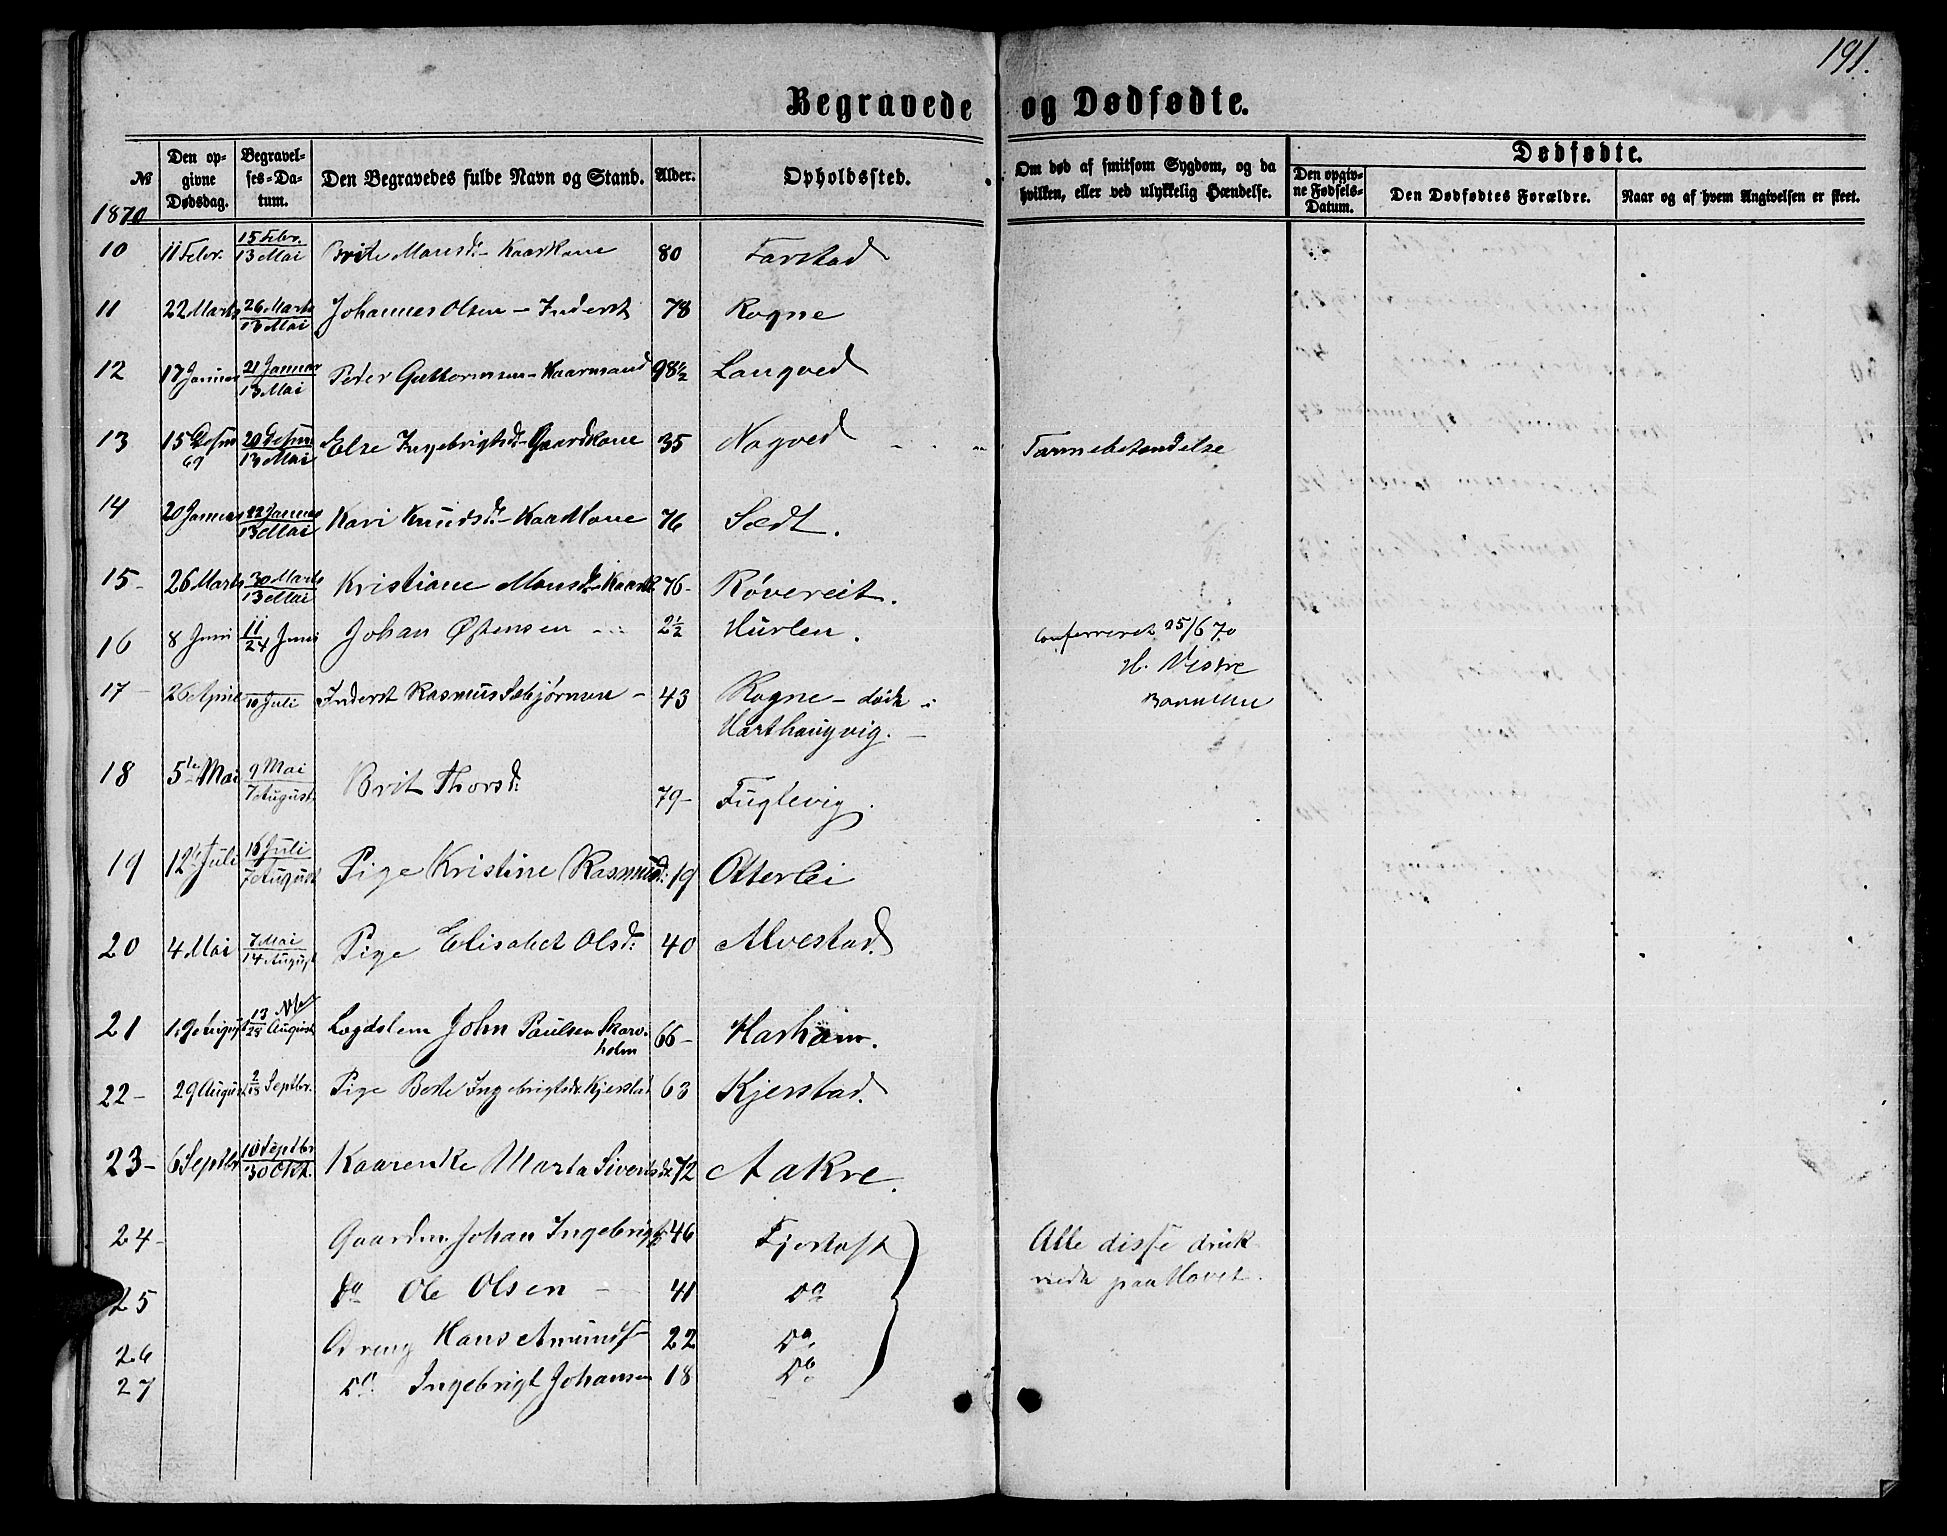 191.
Begravede og Dødfødte.
№ 1870
Den opgivne Dødsdag.
Begravelses-Datum.
Den Begravedes fulde Navn og Stand.
Alder.
Opholdssted.
Om død af smitsom Sygdom, og da hvilken, eller ved ulykkelig Hændelse.
Dødfødte.
Den opgivne Fødsels-Datum.
Den Dødfødtes Forældre.
Naar og af hvem Angivelsen er skeet.
10 11 Febr. 15 Febr. 13 Mai Brite Monsd. - Kaarkone 80 Farstad
11 22 Marts 26 Marts 13 Mai Johannes Olsen - Inderst 78 Rogne
12 17 Januar 21 Januar 13 Mai Peder Guttormsen - Kaarmand 98½ Longved
13 15 Desm 69 20 Desm 13 Mai Else Ingebrigtsd. - Gaardkone 35 Nogved - - - Tarmebetendelse
14 20 Januar 22 Januar 13 Mai Kari Knudsd. - Kaarkone 76 Sædt.
15 - 26 Marts 30 Marts 13 Mai Kristiane Monsd. - Kaark. 76 - Røvereit.
16 8 Juni 11/24 Juni Johan Østensen - 2½ Hurlen. Conferreret 25/6 70
H. Vestre
17 - 26 April 10 Juli Inderst Rasmus Sebjørnsen - 43 Rogne - døde i
Harthaugvig. -
18 5te Mai 9 Mai 7 August Brit Thorsd: 79 - Fuglevig.
19 12t Juli 16 Juli 7 August Pige Kristine Rasmusd: 19 Otterlei
20 4 Mai 7 Mai 14 August Pige Elisabet Olsd: 40 Alvestad.
21 19 August 13/28 August Lægdslem John Paulsen Skarvholm 66 - Harham.
22 - 29 August 2/18 Septbr. Pige Berte Ingebrigtsd. Kjerstad 63 Kjerstad.
23 - 6 Septbr 10 Septbr 30 Okt. Kaarenke Marta Sivertsd: 72 Aakre.
24 - Gaardm. Johan Ingebrigts 46 Fjørtoft Alle disse druknede paa Havet.
25 Do Ole Olsen - 41 Do
26 Dreng Hans Amunds - 22 Do
27 Do. Ingebrigt Johansen 18 Do